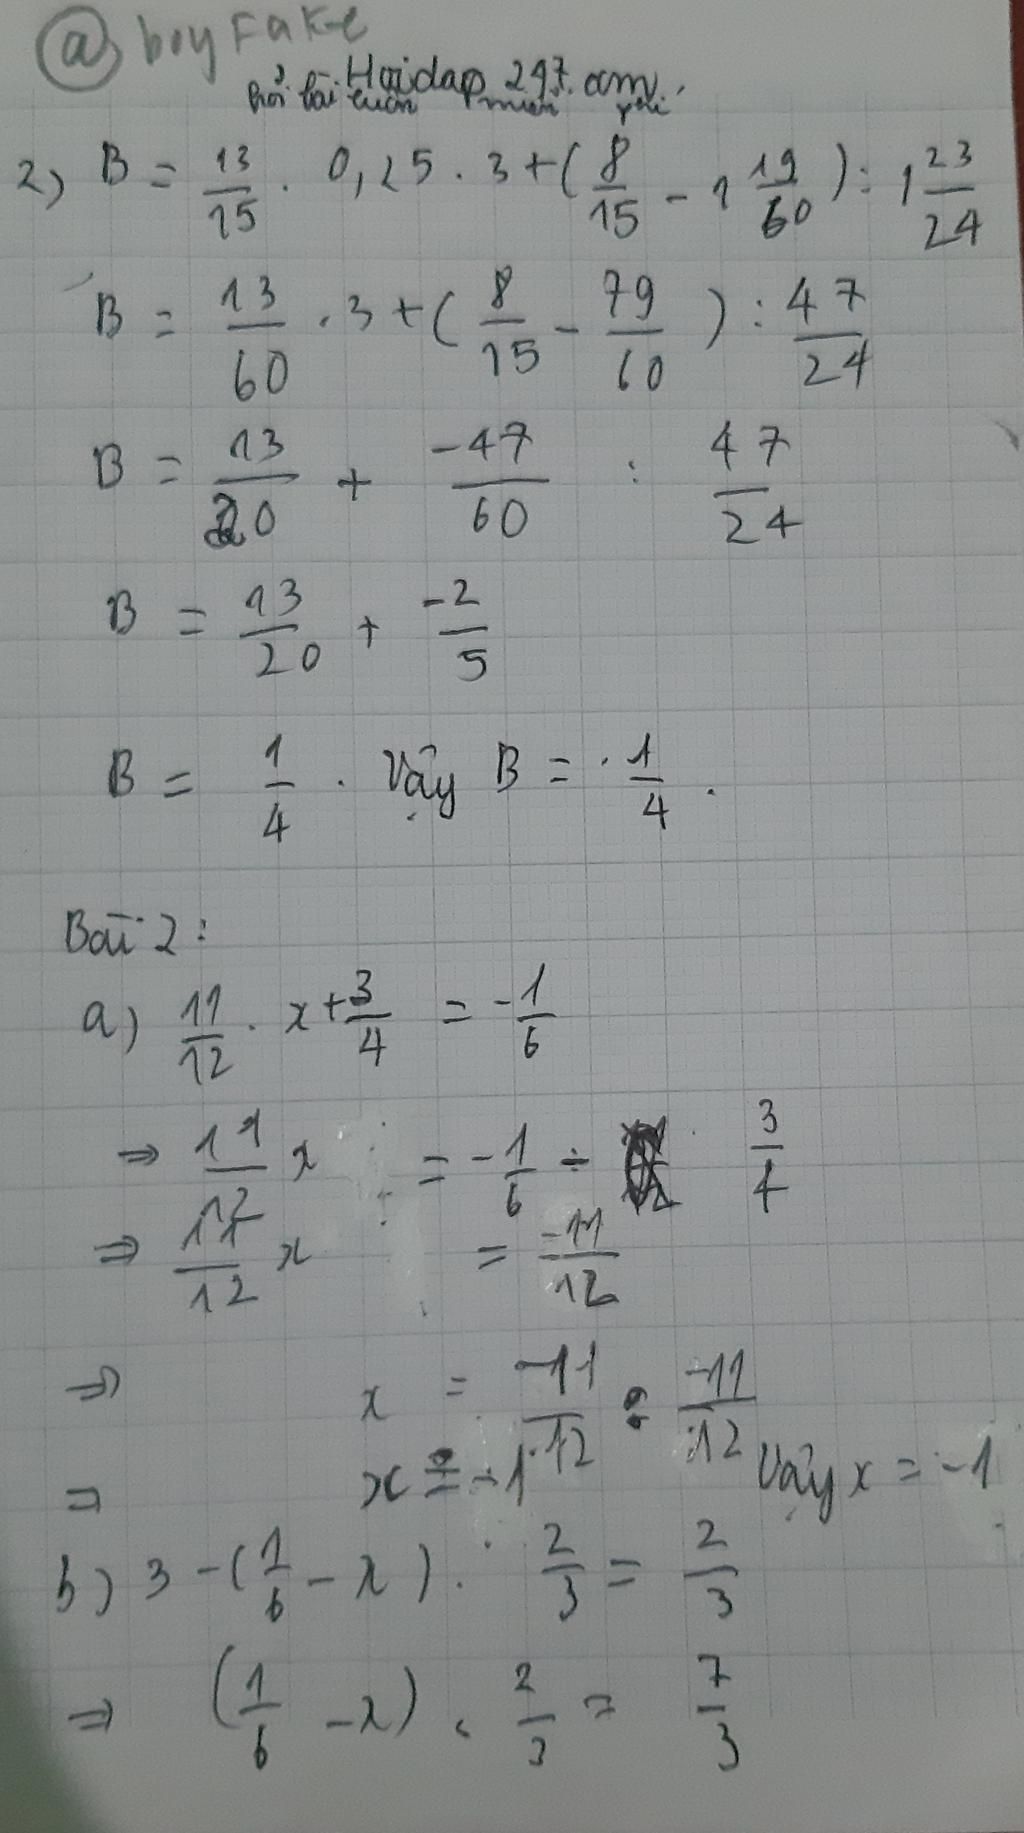 @ boy Fake
Hoidap 247.com
2) B = 13/15 . 0,25 . 3 + ( 8/15 - 1 19/60 ) : 1 23/24
B = 13/60 . 3 + ( 8/15 - 79/60 ) : 47/24
B = 13/20 + -47/60 : 47/24
B = 13/20 + -2/5
B = 1/4 . Vậy B = 1/4 .
Bài 2 :
a) 11/12 . x + 3/4 = - 1/6
⇒ 11/12 x = - 1/6 ÷ 3/4
⇒ 11/12 x = -11/12
⇒ x = -11/12 : -11/12
= x = -1 Vậy x = -1
b) 3 - ( 1/6 - x ) . 2/3 = 2/3
⇒ ( 1/6 - x ) . 2/3 = 7/3